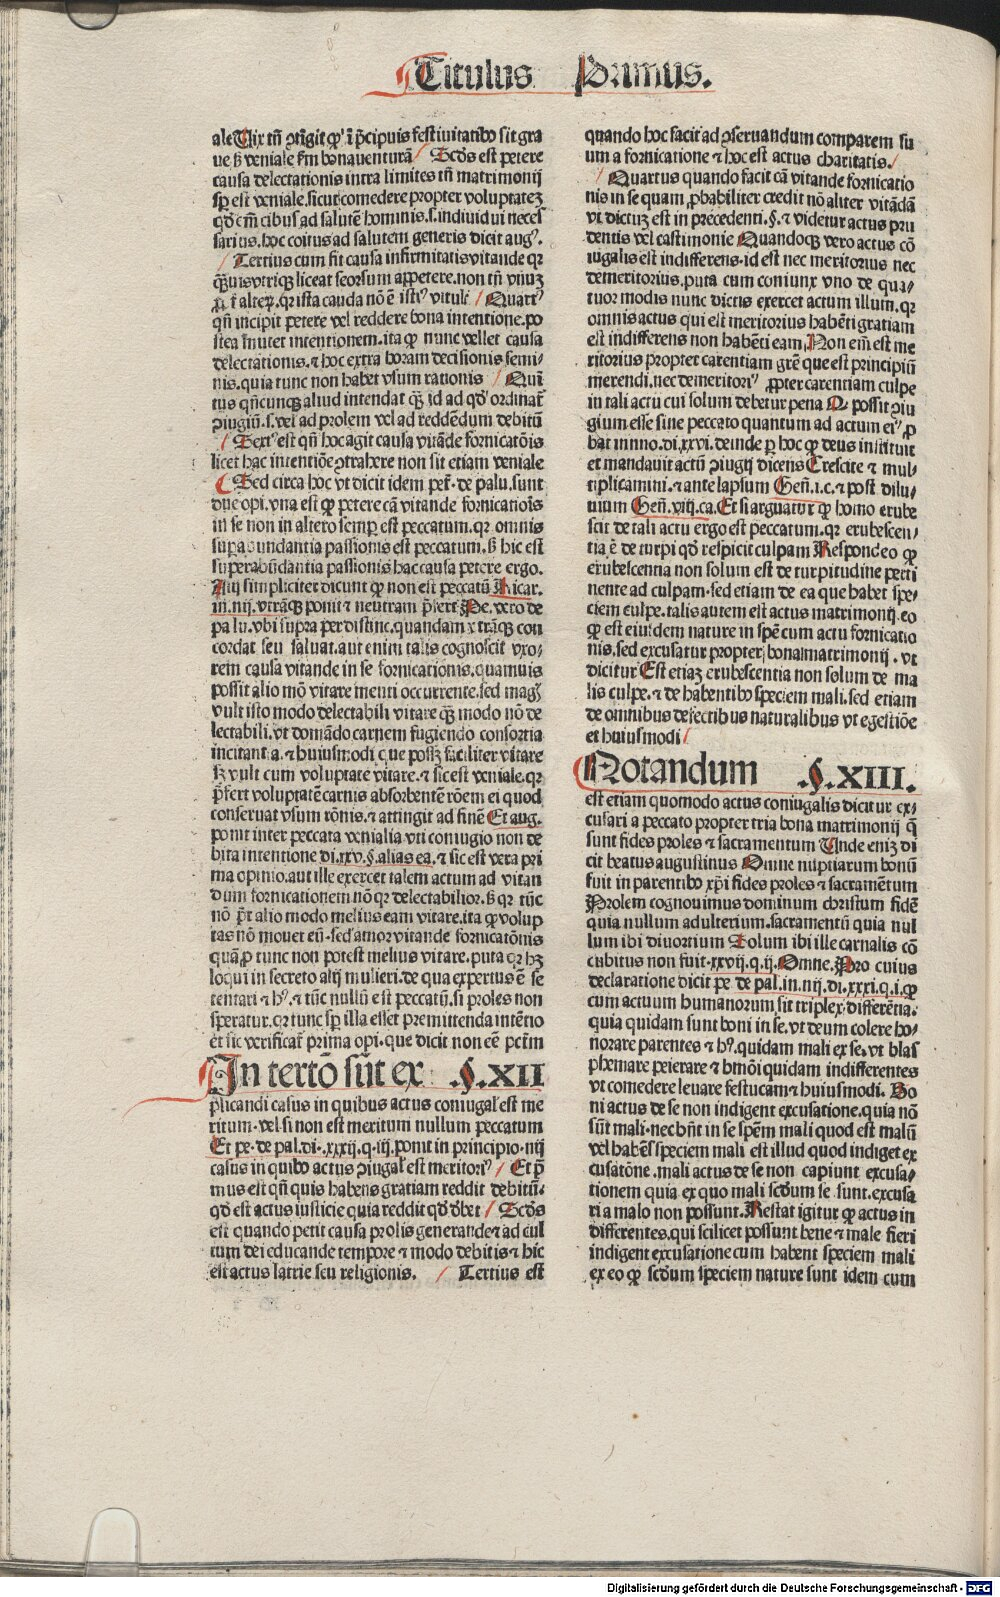 Titulus Primus.
ale Uix tñ ɔtĩgit ꝙ ĩ p̃cipuis festiuitatibꝰ sit gra
ue sꝫ veniale ẜm bonauenturã Scðs est petere
causa delectationis intra limites tñ matrimonij
sꝑ est veniale. sicut comedere propter voluptateʒ
qð em̃ cibus ad salutẽ hominis. s. indiuidui neces
sarius. hoc coitus ad salutem generis dicit augꝰ.
Tertius cum fit causa infirmitatis vitande qꝛ
qꝫuis vtriqꝫ liceat seorsum appetere. non tñ vnuʒ
ꝓ alteꝝ. qꝛ ista cauda nõ ẽ istiꝰ vituli Quartꝰ
qñ incipit petere vel reddere bona intentione. po
stea ĩmutet intentionem. ita ꝙ nunc vellet causa
delectationis. ⁊ hoc extra horam decisionis semi-
nis. quia tunc non habet vsum rationis Quĩ
tus qñcunqꝫ aliud intendat qꝫ id ad qð ordinat̃
ɔiugiũ. s. vel ad prolem vel ad reddẽdum debitũ
Sextꝰ est qñ hoc agit causa vitãde fornicatõis
licet hac intentiõe ɔtrahere non sit etiam veniale
Sed circa hoc vt dicit idem pet̃. de palu. sunt
due opi. vna est ꝙ petere cã vitande fornicatiõis
in se non in altero semꝑ est peccatum. qꝛ omnis
suꝑabundantia passionis est peccatum. sꝫ hic est
superabũdantia passionis hac causa petere ergo.
Alij simpliciter dicunt ꝙ non est peccatũ Ricar.
in. iiij. vtrãqꝫ ponit ⁊ neutram p̃fert Pe. vero de
palu. vbi supra per distinc. quandam vtrãqꝫ con
cordat seu saluat. aut enim talis cognoscit vxo-
rem causa vitande in se fornicationis. quamuis
possit alio mõ vitare menti occurrente. sed magꝭ
vult isto modo delectabili vitare qꝫ modo nõ de
lectabili. vt domãdo carnem fugiendo consortia
incitantia. ⁊ huiusmodi que possꝫ faciliter vitare
sꝫ vult cum voluptate vitare. ⁊ sic est veniale. qꝛ
p̃fert voluptatẽ carnis absorbentẽ rõem ei quod
conseruat vsum rõnis. ⁊ attingit ad finẽ Et aug.
ponit inter peccata venialia vti coniugio non de
bita intentione di. xxv. §. alias ea. ⁊ sic est vera pri
ma opinio. aut ille exercet talem actum ad vitan
dum fornicationem nõ qꝛ delectabilior. sꝫ qꝛ tũc
nõ põt alio modo melius eam vitare. ita ꝙ volup
tas nõ mouet eũ. sed amor vitande fornicatõnis
quã ꝓ tunc non potest melius vitare. puta qꝛ hꝫ
loqui in secreto alij mulieri. de qua expertus ẽ se
tentari ⁊ hꝰ. ⁊ tũc nullũ est peccatũ. si proles non
speratur. qꝛ tunc sꝑ illa esset premittenda intẽtio
et sic verificat̃ prima opi. que dicit non eẽ pctm̃
In tertõ sũt ex §. XII
plicandi casus in quibus actus coniugał est me
ritum. vel si non est meritum nullum peccatum
Et pe. de pal. di. xxxij. q. iij. ponit in principio. iiij
casus in quibꝰ actus ɔiugał est meritoriꝰ Et p̃
mus est qñ quis habens gratiam reddit debitũ.
qð est actus iusticie quia reddit qð dʒbet Scðs
est quando petit causa prolis generande ⁊ ad cul
tum dei educande tempore ⁊ modo debitis ⁊ hic
est actus latrie seu religionis. Tertius est
quando hoc facit ad ɔseruandum comparem su
um a fornicatione ⁊ hoc est actus charitatis.
Quartus quando facit cã vitande fornicatio
nis in se quam ꝓbabiliter credit nõ aliter vitãdã
vt dictuʒ est in precedenti. §. ⁊ videtur actus pru
dentis vel castimonie Quandoqꝫ vero actus cõ
iugalis est indifferens. id est nec meritorius nec
demeritorius. puta cum coniunx vno de qua-
tuor modis nunc dictis exercet actum illum. qꝛ
omnis actus qui est meritorius habẽti gratiam
est indifferens non habẽti eam, Non em̃ est me
ritorius propter carentiam grẽ que est principiũ
merendi. nec demeritoriꝰ ꝓpter carentiam culpe
in tali actu cui solum debetur pena Q possit ɔiu
gium esse sine peccato quantum ad actum eiꝰ ꝓ
bat inno. di. xxvi. deinde ꝑ hoc ꝙ deus instituit
et mandauit actũ ɔiugij dicens Crescite ⁊ mul-
tiplicamini. ⁊ ante lapsum Geñ. i. c. ⁊ post dilu-
uium Geñ. viij. ca. Et si arguatur ꝙ homo erube
scit de tali actu ergo est peccatum. qꝛ erubescen-
tia ẽ de turpi qð respicit culpam Respondeo ꝙ
erubescentia non solum est de turpitudine perti
nente ad culpam. sed etiam de ea que habet spe-
ciem culpe. talis autem est actus matrimonij. eo
ꝙ est eiusdem nature in spẽ cum actu fornicatio
nis. sed excusatur propter bona matrimonij. vt
dicitur Est etiaʒ erubescentia non solum de ma
lis culpe. ⁊ de habentibꝰ speciem mali. sed etiam
de omnibus defectibus naturalibus vt egestiõe
et huiusmodi
Notandum .§. XIII.
est etiam quomodo actus coniugalis dicitur ex-
cusari a peccato propter tria bona matrimonij q̃
sunt fides proles ⁊ sacramentum Unde eniʒ di
cit beatus augustinus Omne nuptiarum bonũ
fuit in parentibꝰ xp̃i fides proles ⁊ sacramẽtum
Prolem cognouimus dominum christum fidẽ
quia nullum adulterium. sacramentũ quia nul
lum ibi diuortium Solum ibi ille carnalis cõ
cubitus non fuit. xxvij. q. ij. Omne. Pro cuius
declaratione dicit pe. de pal. in. iiij. di. xxxi. q. i. ꝙ
cum actuum humanorum sit triplex differẽtia.
quia quidam sunt boni in se. vt deum colere ho-
norare parentes ⁊ hꝰ. quidam mali ex se. vt blas
phemare peierare ⁊ hmõi quidam indifferentes
vt comedere leuare festucam ⁊ huiusmodi. Bo
ni actus de se non indigent excusatione. quia nõ
sũt mali. nec hñt in se spẽm mali quod est malũ
vel habẽs speciem mali est illud quod indiget ex
cusatõne. mali actus de se non capiunt excusa-
tionem quia ex quo mali scðum se sunt. excusa
ri a malo non possunt. Restat igitur ꝙ actus in
differentes. qui scilicet possunt bene ⁊ male fieri
indigent excusatione cum habent speciem mali
ex eo ꝙ scðum speciem nature sunt idem cum
Digitalisierung gefördert durch die Deutsche Forschungsgemeinschaft - DFG